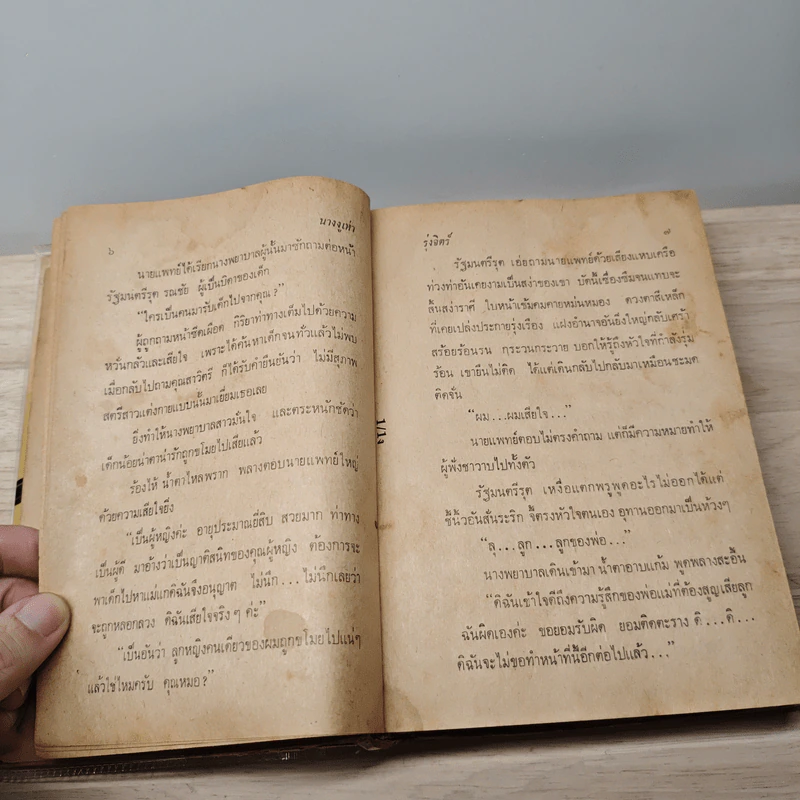 ๖ นางงูเห่า
นายแพทย์ได้เรียกนางพยาบาลผู้นั้นมาซักถามต่อหน้า
รัฐมนตรีรุต รณชัย ผู้เป็นบิดาของเด็ก
“ใครเป็นคนมารับเด็กไปจากคุณ?”
ผู้ถูกถามหน้าซีดเผือด กิริยาท่าทางเต็มไปด้วยความ
หวั่นกลัวและเสียใจ เพราะได้ค้นหาเด็กจนทั่วแล้วไม่พบ
เมื่อกลับไปถามคุณสาวิตรี ก็ได้รับคำยืนยันว่า ไม่มีสุภาพ
สตรีสาวแต่งกายแบบนั้นมาเยี่ยมเธอเลย
ยิ่งทำให้นางพยาบาลสาวมั่นใจ และตระหนักชัดว่า
เด็กน้อยน่าตาน่ารักถูกขโมยไปเสียแล้ว
ร้องไห้ น้ำตาไหลพราก พลางตอบนายแพทย์ใหญ่
ด้วยความเสียใจยิ่ง
“เป็นผู้หญิงค่ะ อายุประมาณยี่สิบ สวยมาก ท่าทาง
เป็นผู้ดี มาอ้างว่าเป็นญาติสนิทของคุณผู้หญิง ต้องการจะ
พาเด็กไปหาแม่แกดิฉันจึงอนุญาต ไม่นึก...ไม่นึกเลยว่า
จะถูกหลอกลวง ดิฉันเสียใจจริงๆ ค่ะ”
“เป็นอันว่า ลูกหญิงคนเดียวของผมถูกขโมยไปแน่ๆ
แล้วใช่ไหมครับ คุณหมอ?”
รุ่งจิตร์ ๗
รัฐมนตรีรุต เอ่ยถามนายแพทย์ด้วยเสียงแหบเครือ
ท่วงท่าอันเคยงามเป็นสง่าของเขา บัดนี้เซื่องซึมจนแทบจะ
สิ้นสง่าราศี ใบหน้าเข้มคมคายหม่นหมอง ดวงตาสีเหล็ก
ที่เคยเปล่งประกายรุ่งเรือง แฝงอำนาจอันยิ่งใหญ่กลับเศร้า
สร้อยร้อนรน กระวนกระวาย บอกให้รู้ถึงหัวใจที่กำลังรุ่ม
ร้อน เขายืนไม่ติด ได้แต่เดินกลับไปกลับมาเหมือนชะมด
ติดจั่น
“ผม...ผมเสียใจ...”
นายแพทย์ตอบไม่ตรงคำถาม แต่ก็มีความหมายทำให้
ผู้ฟังชาวาบไปทั้งตัว
รัฐมนตรีรุต เหงื่อแตกพรูพูดอะไรไม่ออกได้แต่
ชี้นิ้วอันสั่นระริก จี้ตรงหัวใจตนเอง อุทานออกมาเป็นห้วงๆ
“ลุ...ลูก...ลูกของพ่อ...”
นางพยาบาลเดินเข้ามา น้ำตาอาบแก้ม พูดพลางสะอื้น
“ดิฉันเข้าใจดีถึงความรู้สึกของพ่อแม่ที่ต้องสูญเสียลูก
ฉันผิดเองค่ะ ขอยอมรับผิด ยอมติดตะราง ดิ...ดิ...
ดิฉันจะไม่ขอทำหน้าที่นี้อีกต่อไปแล้ว...”